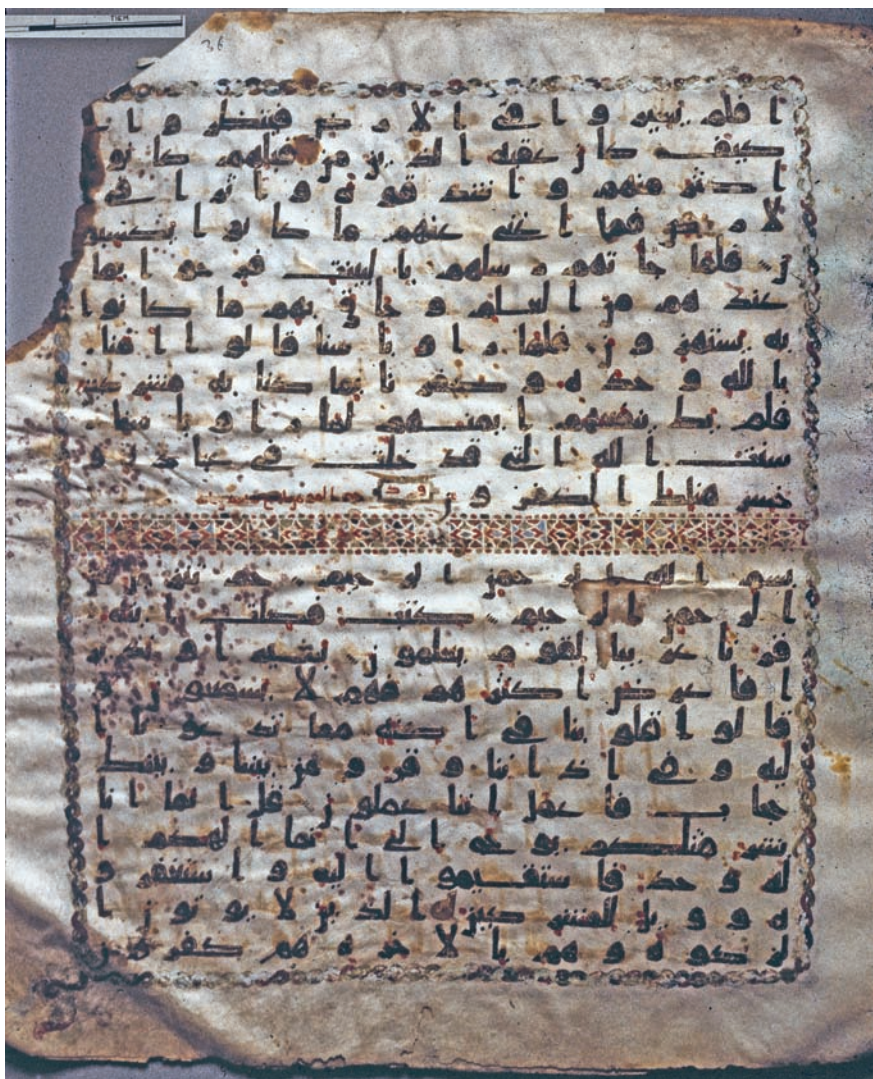 TIEM
36
افلم يسيروا في الارض فينظروا
كيف كان عقبة الذين من قبلهم كانوا
اكثر منهم واشد قوة واثارا في
الارض فما اغنى عنهم ما كانوا يكسبو
ن فلما جاتهم رسلهم بالبينت فرحوا بما
عندهم من العلم وحاق بهم ما كانوا
به يستهزون فلما راوا باسنا قالوا امنا
بالله وحده وكفرنا بما كنا به مشركين
فلم يك ينفعهم ايمنهم لما راوا باسنا
سنت الله التي قد خلت في عباده و
خسر هنالك الكفرون
بسم الله الرحمن الرحيم حم تنزيل من
الرحمن الرحيم كتب فصلت ايته
قرانا عربيا لقوم يعلمون بشيرا ونذير
ا فاعرض اكثرهم فهم لا يسمعون و
قالوا قلوبنا في اكنة مما تدعونا ا
ليه وفي اذاننا وقر ومن بيننا وبينك
حجاب فاعمل اننا عملون قل انما انا
بشر مثلكم يوحى الي انما الهكم ا
له وحد فاستقيموا اليه واستغفرو
ه وويل للمشركين الذين لا يوتون ا
لزكوة وهم بالاخرة هم كفرون